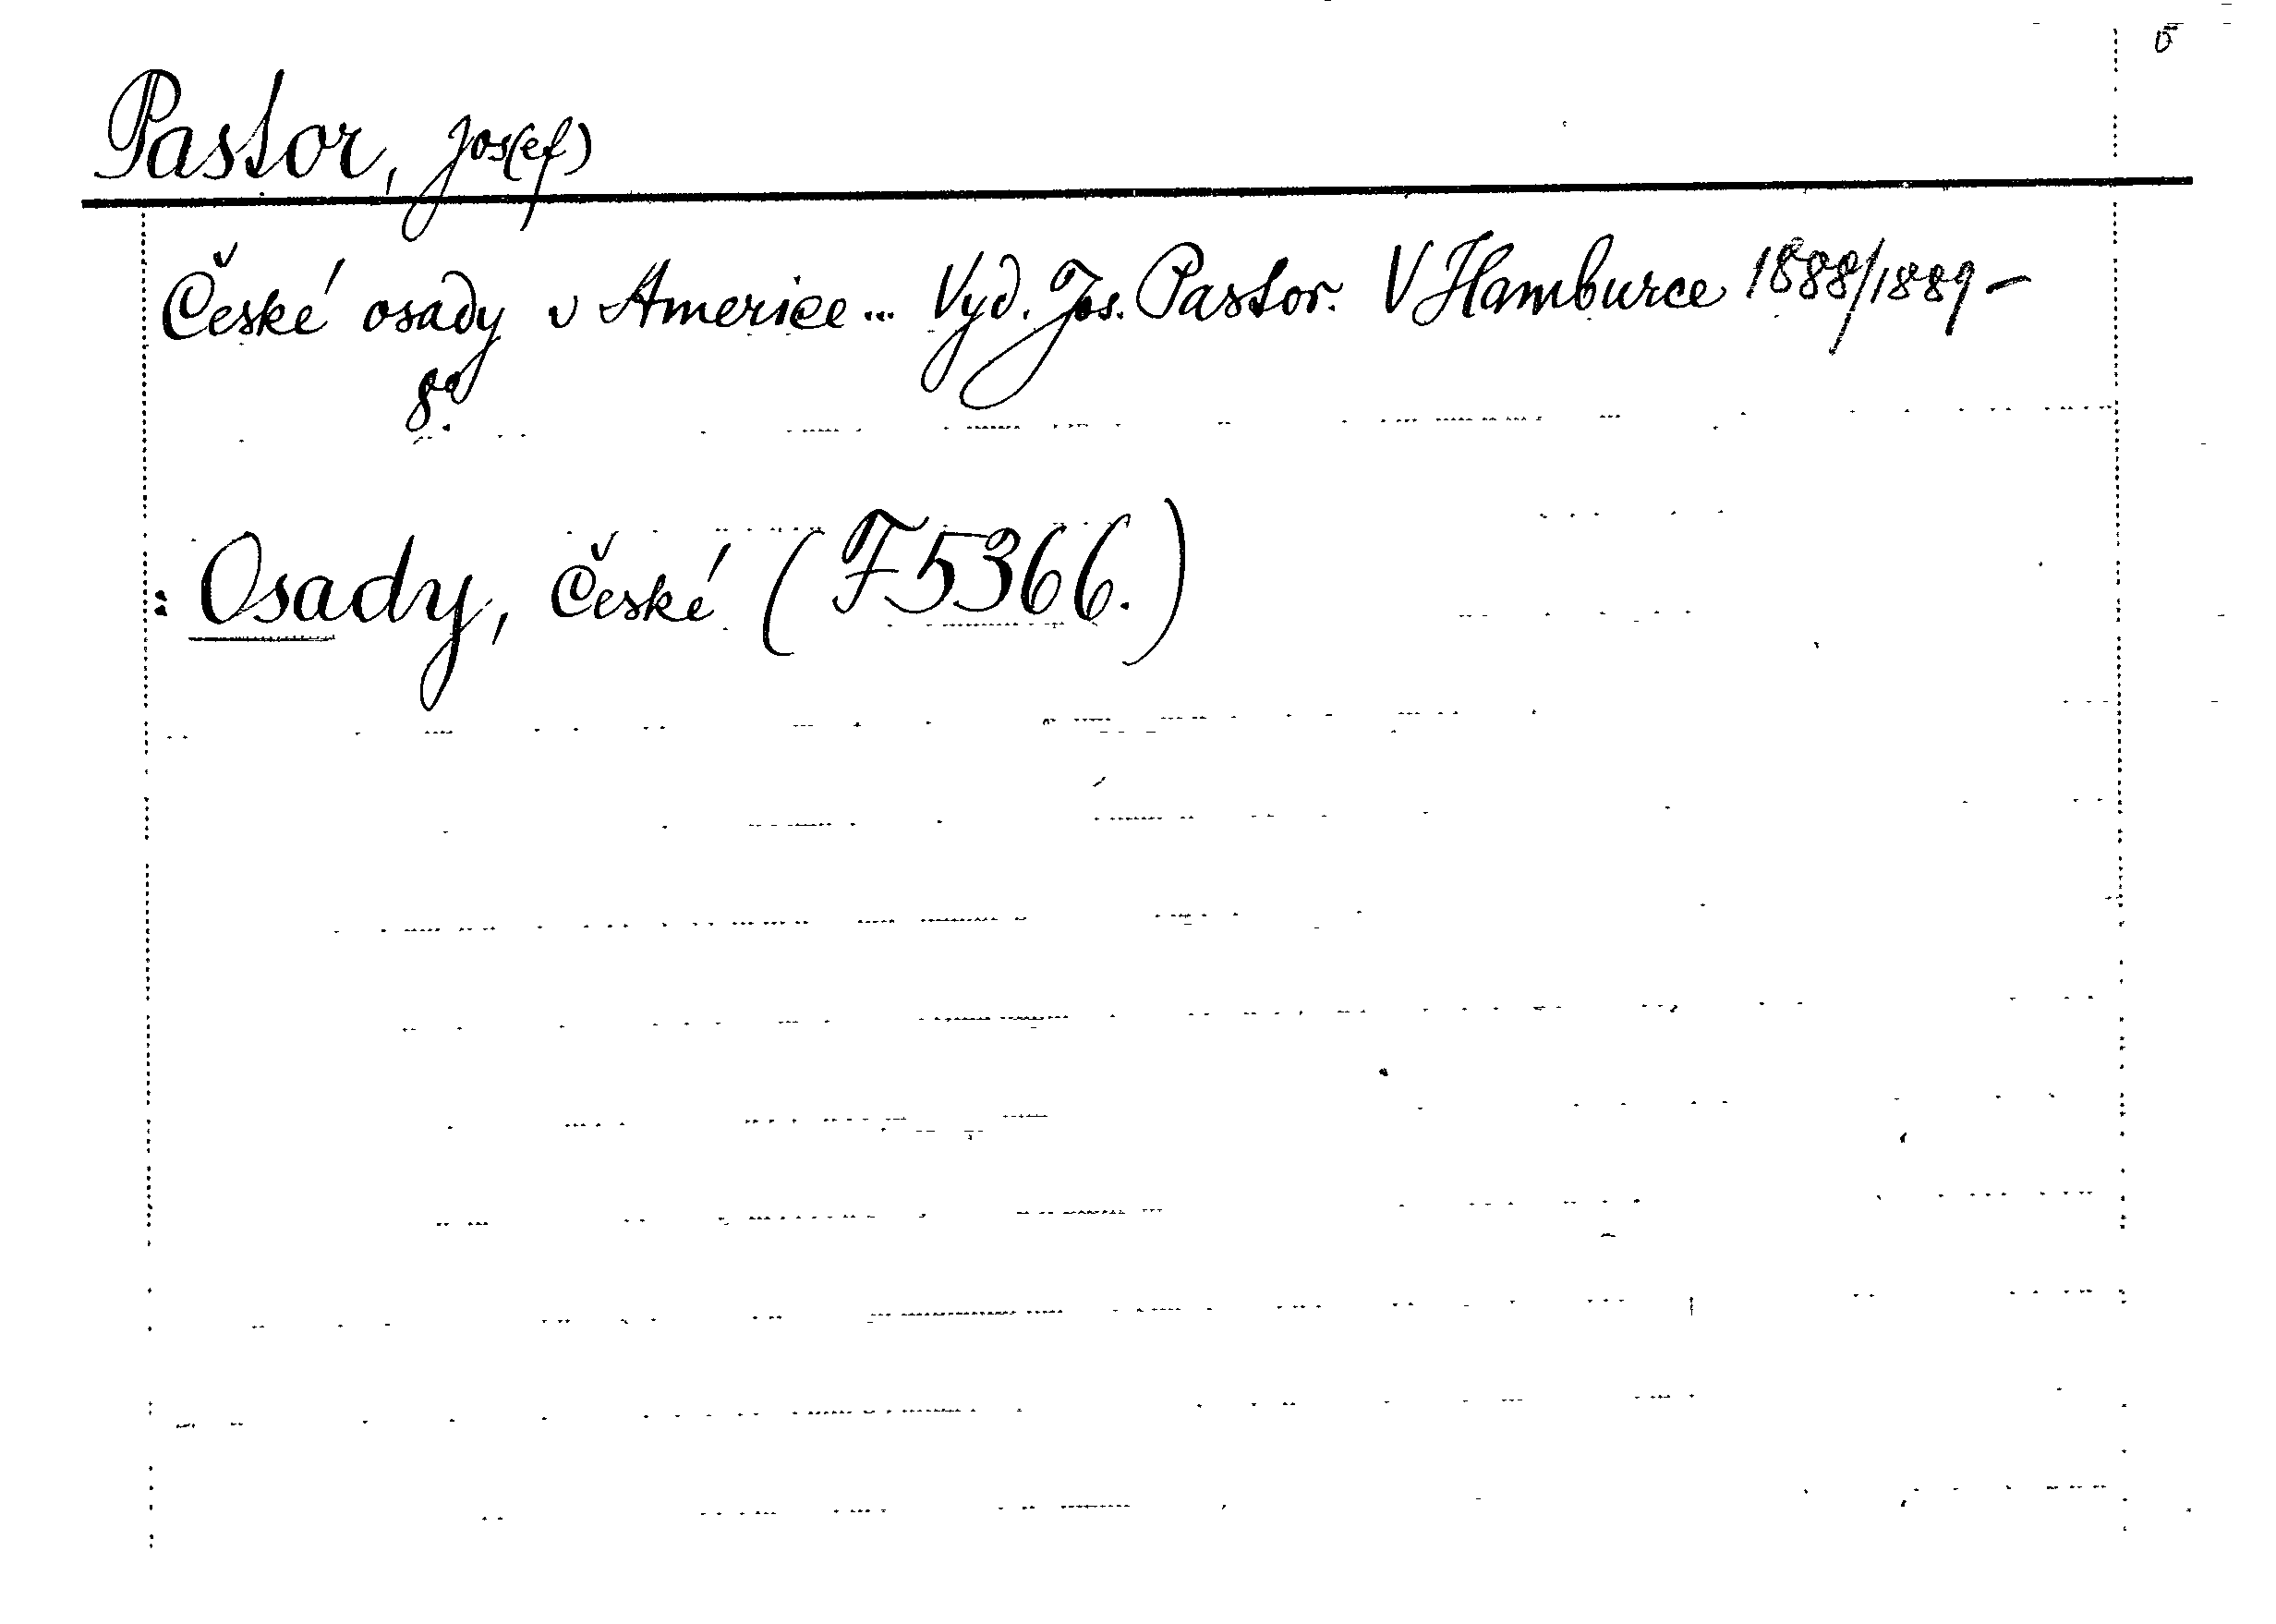 Pastor, Jos(ef)
České osady v Americe... Vyd. Jos. Pastor. V Hamburce 1888/1889 –
8°.
: Osady, České (F 5366.)